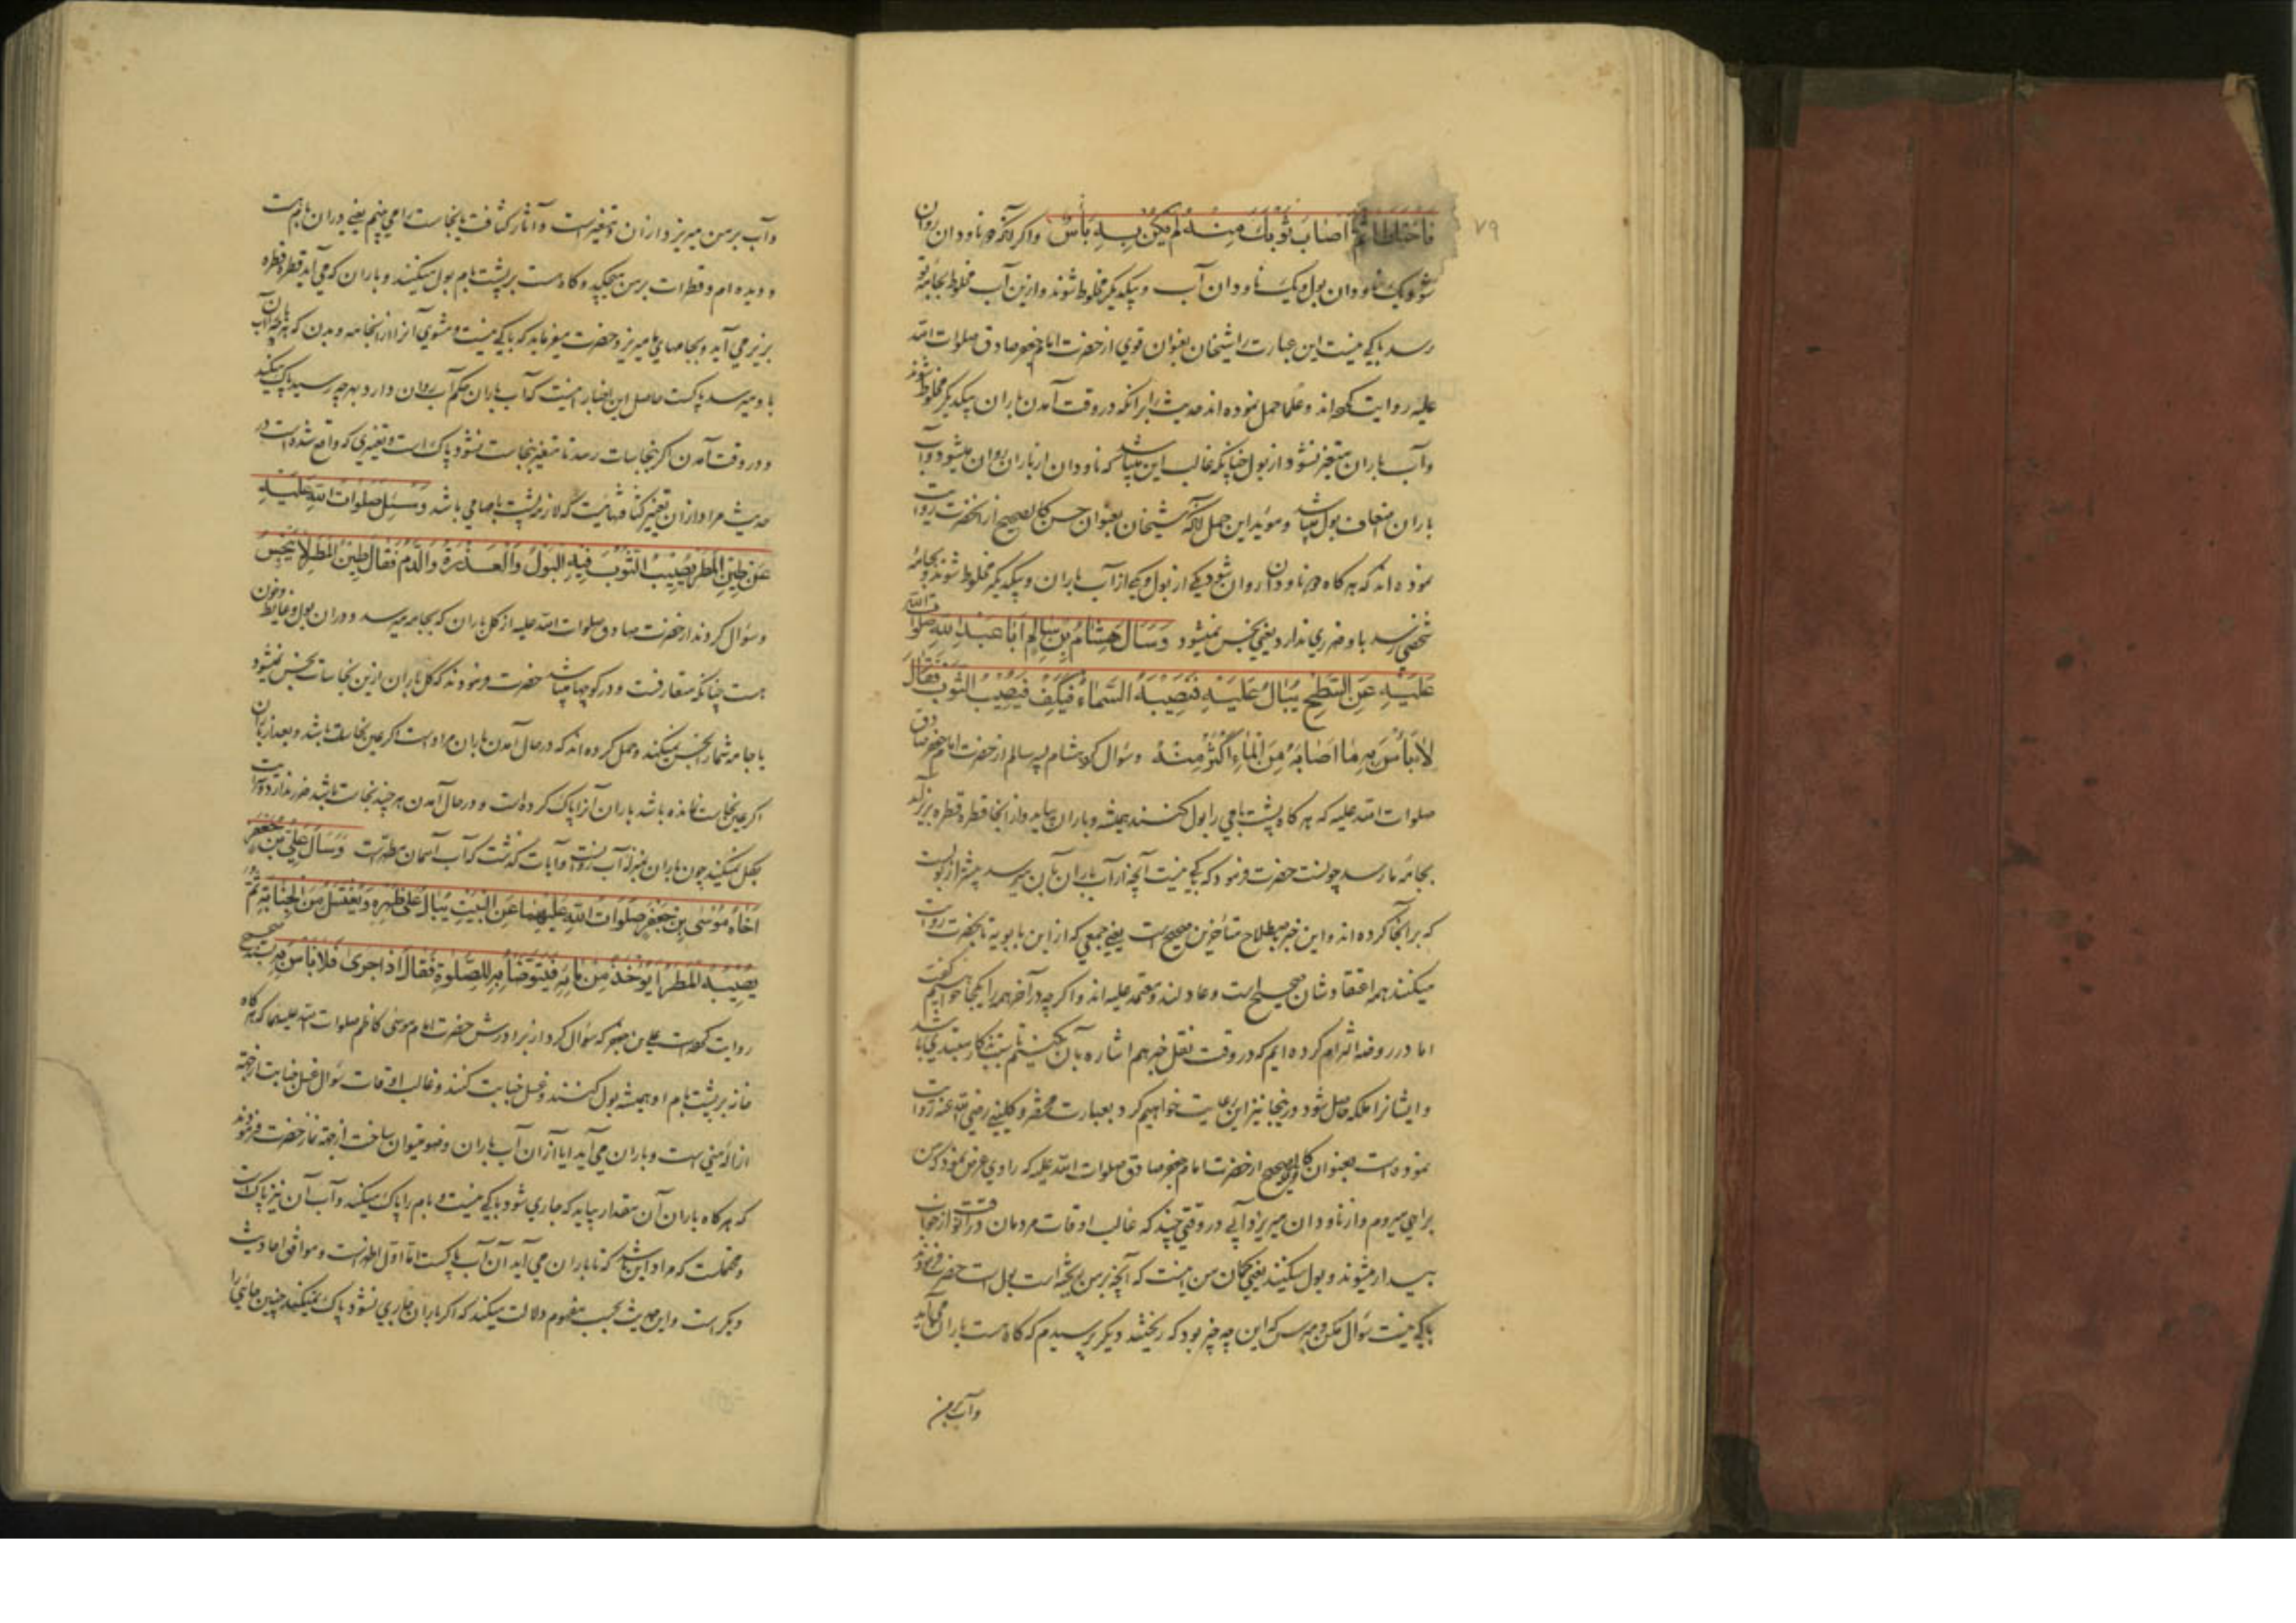 ۷۹
فَاخْتَلَطَا ثُمَّ اَصَابَ ثَوْبَكَ مِنْهُ لَمْ يَكُنْ بِهِ بَأْسٌ و اگر آنکه دو ناودان روان
شود یک ناودان بول و یک ناودان آب و بیکدیگر مخلوط شوند و ازین آب مخلوط بجامه تو
رسد باکی نیست این عبارت را شیخان بعنوان قوی از حضرت امام جعفر صادق صلوات الله
علیه روایت کرده‌اند و علما حمل نموده اند حدیث را برانکه در وقت آمدن باران بیکدیگر مخلوط شوند
و آب باران متغیر نشود از بول چنانکه غالب این میباشد که ناودان از باران روان میشود و آب
باران اضعاف بول میباشد و مؤید این حمل آنکه شیخان بعنوان حسن کالصحیح از آنحضرت روایت
نموده اند که هرگاه دو ناودان روان شود یکی از بول و یکی از آب باران و بیکدیگر مخلوط شوند و بجامه
شخصی رسد باو ضرری ندارد یعنی نجس نمیشود وَسَأَلَ هِشَامُ بْنُ سَالِمٍ اَبَا عَبْدِ اللهِ صَلَوَاتُ اللهِ
عَلَيْهِ عَنِ السَّطْحِ يُبَالُ عَلَيْهِ فَتُصِيبُهُ السَّمَاءُ فَيَكِفُ فَيُصِيبُ الثَّوْبَ فَقَالَ
لَا بَأْسَ بِهِ مَا اَصَابَهُ مِنَ الْمَاءِ اَكْثَرُ مِنْهُ و سؤال کرد هشام پسر سالم از حضرت امام جعفر صادق
صلوات الله علیه که هرگاه پشت بامی را بول کنند همیشه و باران بیاید و از آنجا قطره قطره بزیر آید
بجامه ما رسد چونست حضرت فرمود که باکی نیست آنچه از آب باران بآن میرسد بیشتر از بولیست
که بر آنجا کرده اند و این خبر باصطلاح متأخرین صحیح است یعنی جمعی که از ابن بابویه تا بحضرت روایت
میکنند همه اعتقادشان صحیح است و عادلند و معتمد علیه اند و اگر چه در آخر همه را یکجا خواهیم گفت
اما در روضه التزام کرده ایم که در وقت نقل خبر هم اشاره بآن بکنیم تا تنبیه کار مبتدی باشد
و ایشانرا ملکه حاصل شود در اینجا نیز این رعایت خواهیم کرد بعبارت مختصر و کلینی رضی الله عنه روایت
نموده است بعنوان کالصحیح از حضرت امام جعفر صادق صلوات الله علیه که راوی عرض نمود که من
براهی میروم و از ناودان میریزد آبی در وقتی چند که غالب اوقات مردمان در آن وقت از خواب
بیدار میشوند و بول میکنند یعنی گمان من اینست که آنچه بر من ریخته است بول است حضرت فرمودند
باکی نیست سؤال مکن و مپرس که این چه چیز بود که ریختند دیگر پرسیدم که گاه هست باران می‌آید
و آب بر من
و آب بر من میریزد و از ان متغیر است و آثار کثافت یا نجاست را می بینم یعنی در ان بام هست
و دیده ام و قطرات بر من میچکد و گاه هست بر پشت بام بول میکنند و باران که می آید قطره قطره
بزیر می آید و بجامهای ما میریزد حضرت میفرماید که باکی نیست و مشوی آنرا از جامه و بدن که هرچه آب باران
باو میرسد پاکست حاصل این اخبار اینست که آب باران حکم آب روان دارد و بهر چه رسید پاک میکند
و در وقت آمدن اگر بنجاسات رسد تا متغیر بنجاست نشود پاک است و تغییری که واقع شده است در
حدیث مراد از ان تغییر کثافتهائیست که لازم پشت بامها می باشد وَسُئِلَ صَلَوَاتُ اللهِ عَلَيْهِ
عَنْ طِينِ الْمَطَرِ يُصِيبُ الثَّوْبَ فِيهِ الْبَوْلُ وَالْعَذِرَةُ وَالدَّمُ فَقَالَ طِينُ الْمَطَرِ لَا يُنَجِّسُ
و سؤال کردند از حضرت صادق صلوات الله علیه از گل باران که بجامه میرسد و در ان بول و غایط و خون
هست چنانکه متعارفست و در کوچها میباشد حضرت فرمودند که گل باران ازین نجاسات نجس نمیشود
یا جامه شما را نجس نمیکند و حمل کرده اند که در حال آمدن باران مراد است اگر عین نجاست باشد و بعد از باران
اگر عین نجاست نمانده باشد باران آنرا پاک کرده است و در حال آمدن هر چند نجاست باشد ضرر ندارد و سرایت
بگل نمیکند چون باران بمنزله آب روانست و آیات گذشت که آب آسمان مطهر است وَسَأَلَ عَلِيُّ بْنُ جَعْفَرٍ
اَخَاهُ مُوسَى بْنَ جَعْفَرٍ صَلَوَاتُ اللهِ عَلَيْهِمَا عَنِ الْبَيْتِ يُبَالُ عَلَى ظَهْرِهِ وَيُغْتَسَلُ مِنَ الْجَنَابَةِ ثُمَّ
يُصِيبُهُ الْمَطَرُ أَيُؤْخَذُ مِنْ مَائِهِ فَيُتَوَضَّأُ بِهِ لِلصَّلٰوةِ فَقَالَ اِذَا جَرَى فَلَا بَأْسَ بِهِ بسند صحیح
روایت کرده است علی بن جعفر که سؤال کرد از برادرش حضرت امام موسی کاظم صلوات الله علیهما که هرگاه
خانه بر پشت بام او همیشه بول کنند و غسل جنابت کنند و غالب اوقات سؤال غسل جنابت از جهة
ازاله منی است و باران می آید ایا از آن آب باران وضو میتوان ساخت از جهة نماز حضرت فرمودند
که هرگاه باران آن مقدار بیاید که جاری شود باکی نیست و بام را پاک میکند و آب آن نیز پاک است
و محتملست که مراد این باشد که تا باران می آید آن آب پاکست اما اول اظهر است و موافق احادیث
دیگر است و این حدیث بحسب مفهوم دلالت میکند که اگر باران جاری نشود پاک نمیکند چنین جائی را